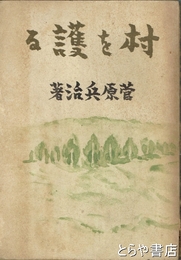 る護を村
著治兵原菅
とらや書店